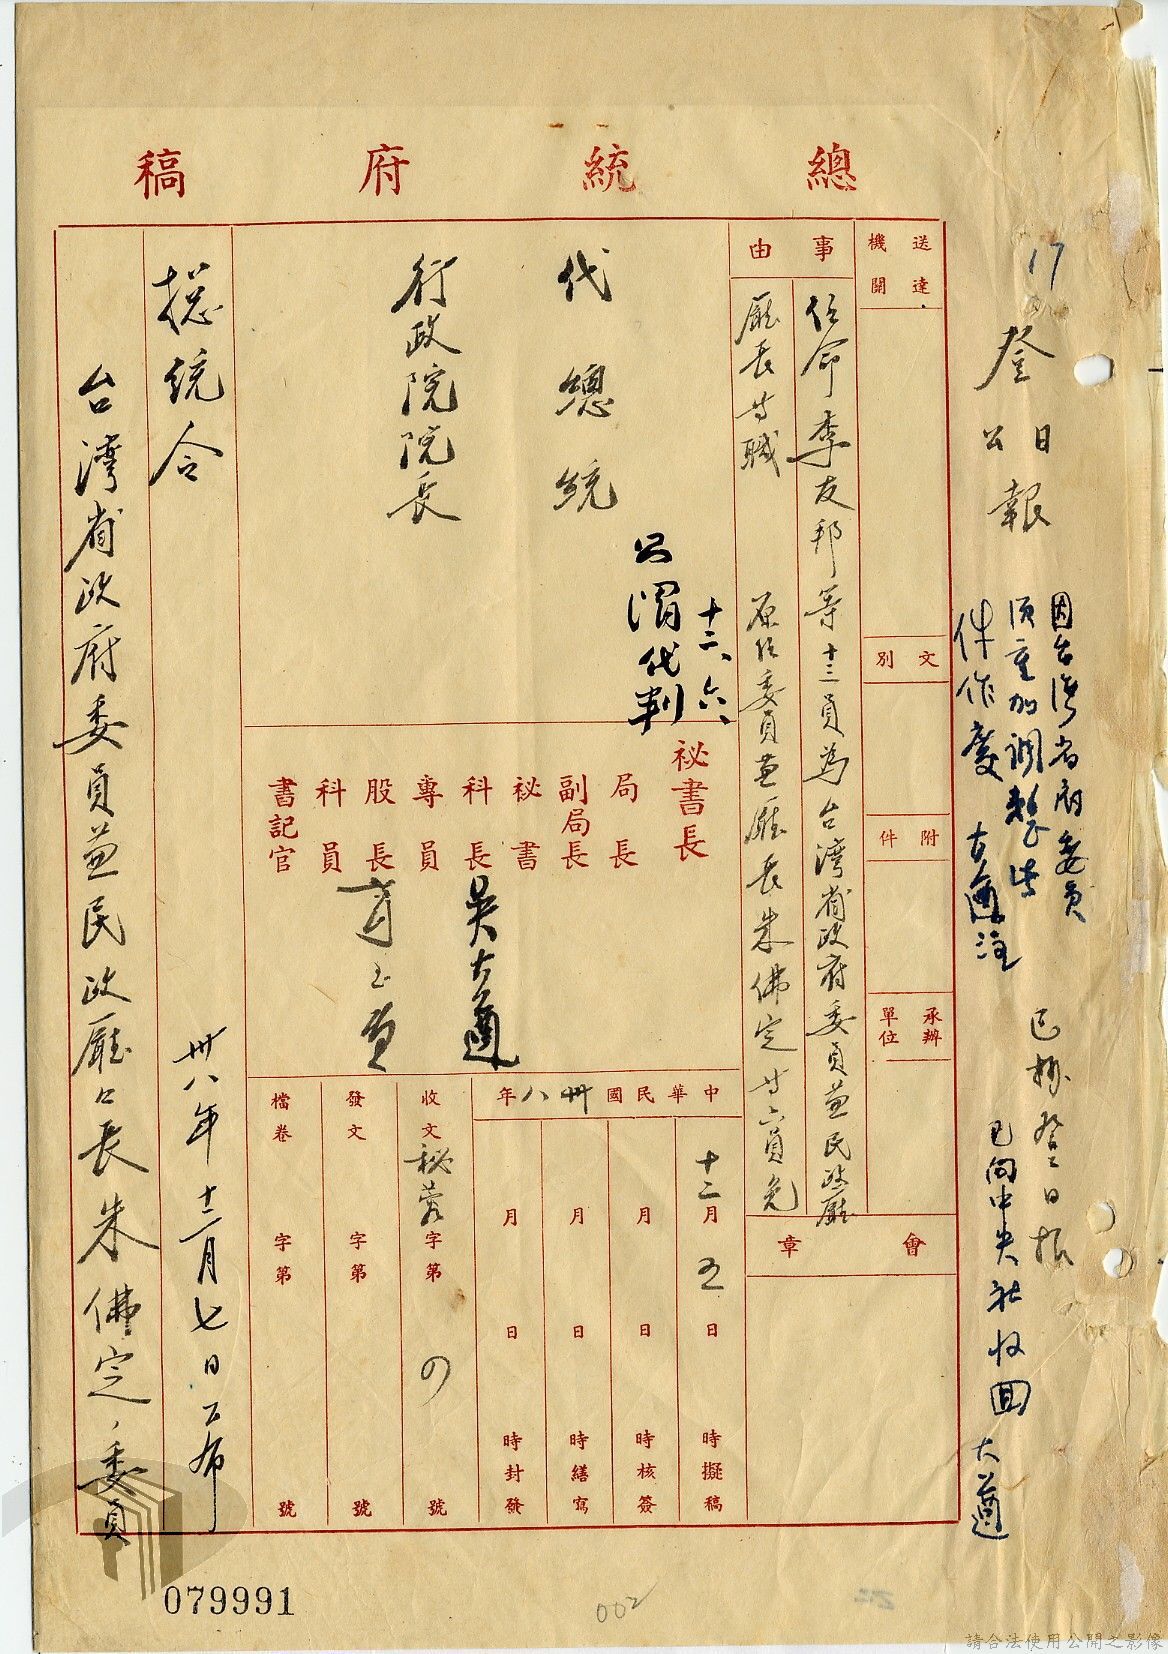 總統府稿
17
登日
公報
因台灣省府委員
須重加調整此
件作廢 大適注
已掛登日報
已向中央社收回 大適
送達機關
文別
附件
承辦單位
會章
事由
任命李友邦等十三員為台灣省政府委員兼民政廳
廳長等職 原任委員兼廳長朱佛定等六員免
代總統
十二、六、
公渭代判
行政院院長
祕書長
局長
副局長
祕書
科長 吳大適
專員
股長
科員
書記官
中華民國卅八年
十二月五日 時擬稿
月日 時核簽
月日 時繕寫
月日 時封發
收文 秘蓉字第 號
發文 字第 號
檔卷 字第 號
總統令
卅八年十二月七日公布
台灣省政府委員兼民政廳廳長朱佛定、委員
079991
002
請合法使用公開之影像